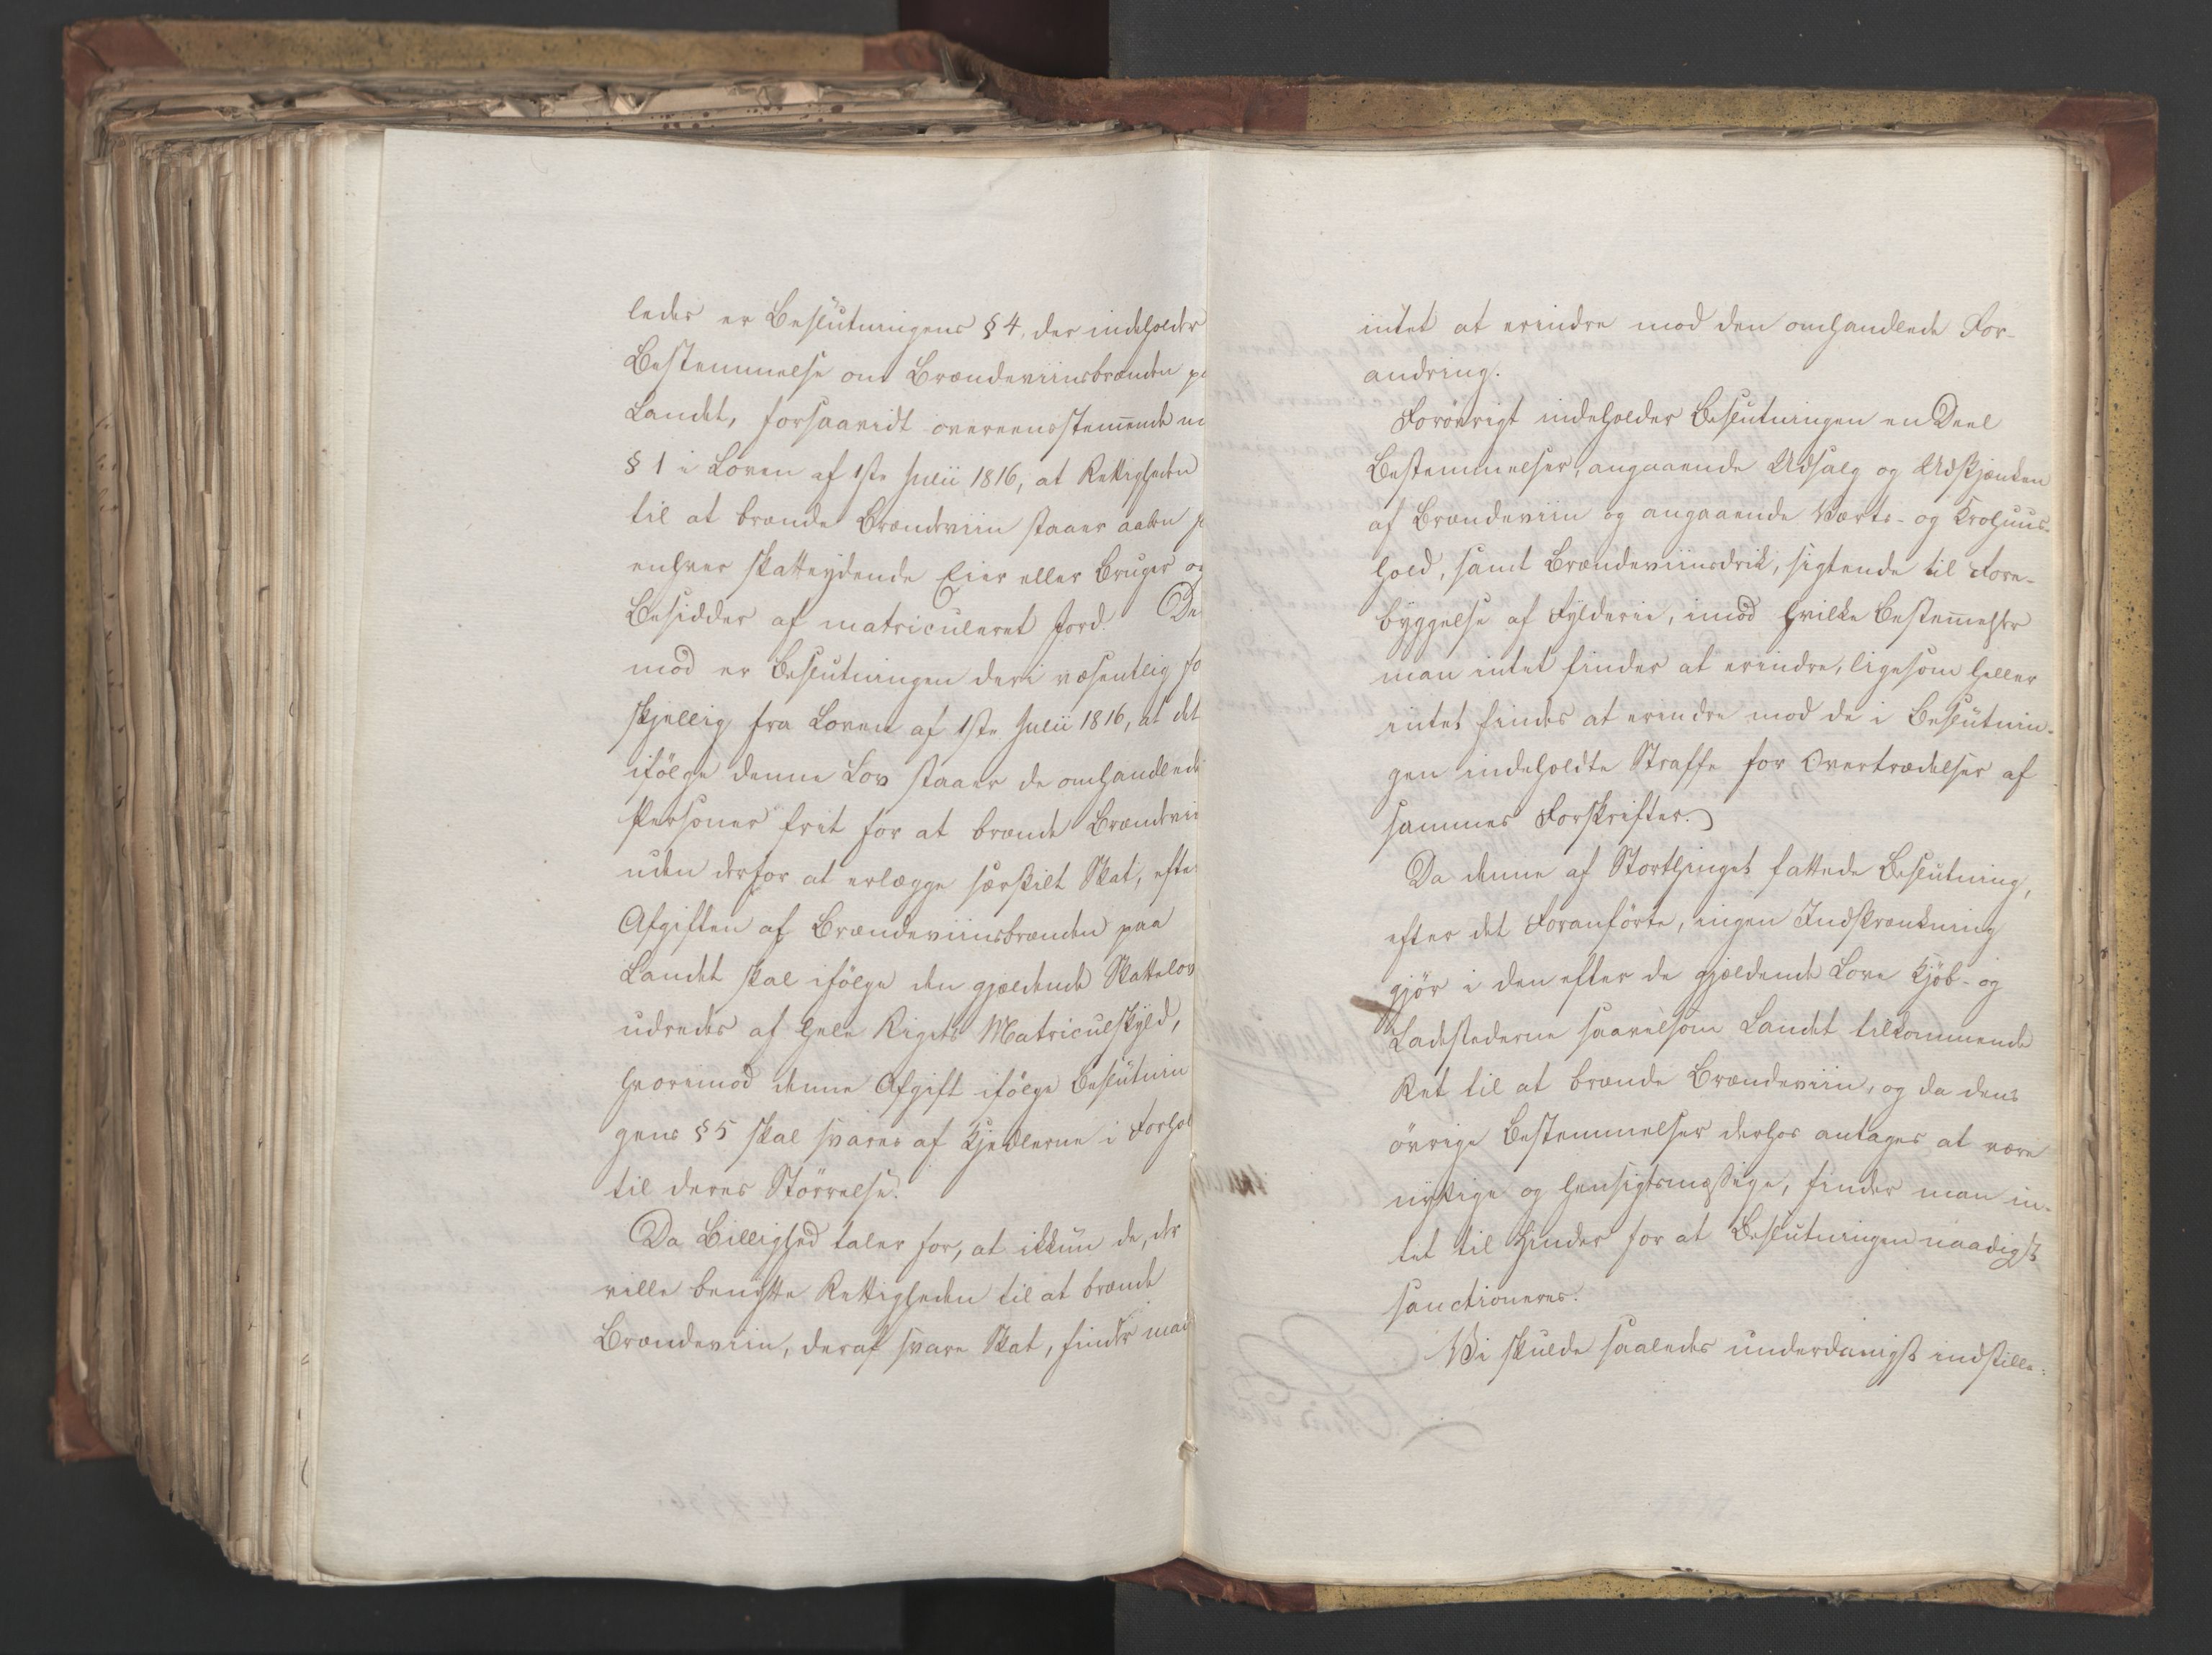 ledes er Beslutningens § 4, der indeholder
Bestemmelse om Brændeviinsbrænden p
Landet, forsaavidt overeensstem̅ende m
§ 1 i Loven af 1ste Julii 1816, at Rettigheden
til at brænde Brændeviin staaer aaben f
enhver skatteydende Eier eller Bruger og
Besidder af matriculeret Jord. De
mod er Beslutningen deri væsentlig fo
skjellig fra Loven af 1ste Julii 1816, at det
ifølge denne Lov staaer de omhandlede
Personer frit for at brænde Brændevii
uden derfor at erlægge særskilt Skat, efte
Afgiften af Brændeviinsbrænden paa
Landet skal ifølge den gjældende Skattelov
udredes af hele Rigets Matriculskyld,
hvorimod denne Afgift ifølge Beslutnin
gens § 5 skal svares af Kjedlerne i Forhol
til deres Størrelse.
Da Billighed taler for, at ikkun de, der
ville benytte Rettigheden til at brænde
Brændeviin, deraf svare Skat, finder man
intet at erindre mod den omhandlede For-
andring.
Forøvrigt indeholder Beslutningen en Deel
Bestemmelser, angaaende Udsalg og Udskjænken
af Brændeviin og angaaende Værts- og Krohuus-
hold, samt Brændeviinsdrik, sigtende til Fore-
byggelse af Fylderie, imod hvilke Bestem̅elser
man intet finder at erindre, ligesom heller
intet findes at erindre mod de i Beslutnin-
gen indeholdte Straffe for Overtrædelser af
sammes Forskrifter.
Da denne af Storthinget fattede Beslutning,
efter det Foranførte, ingen Indskrænkning
gjør i den efter de gjældende Love Kjøb- og
Ladestederne saavelsom Landet tilkommende
Ret til at brænde Brændeviin, og da dens
øvrige Bestemmelser derhos antages at være
nyttige og hensigtsmæssige, finder man in-
tet til Hinder for at Beslutningen naadigst
sanctioneres.
Vi skulde saaledes underdanigst indstille: